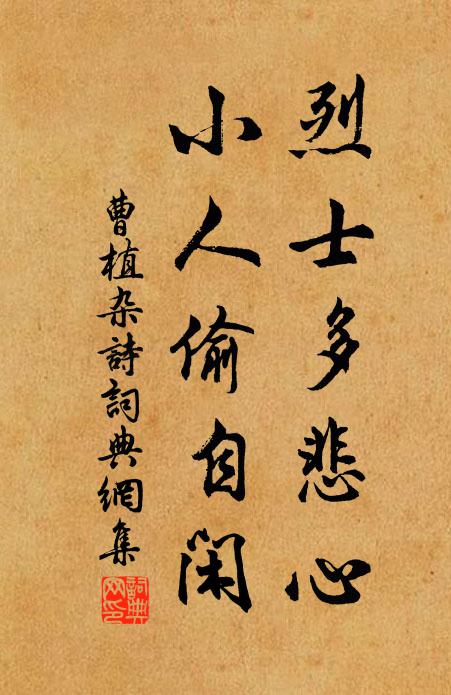 烈士多悲心
小人偷自闲
曹植杂詩詞典網集
詞典网印